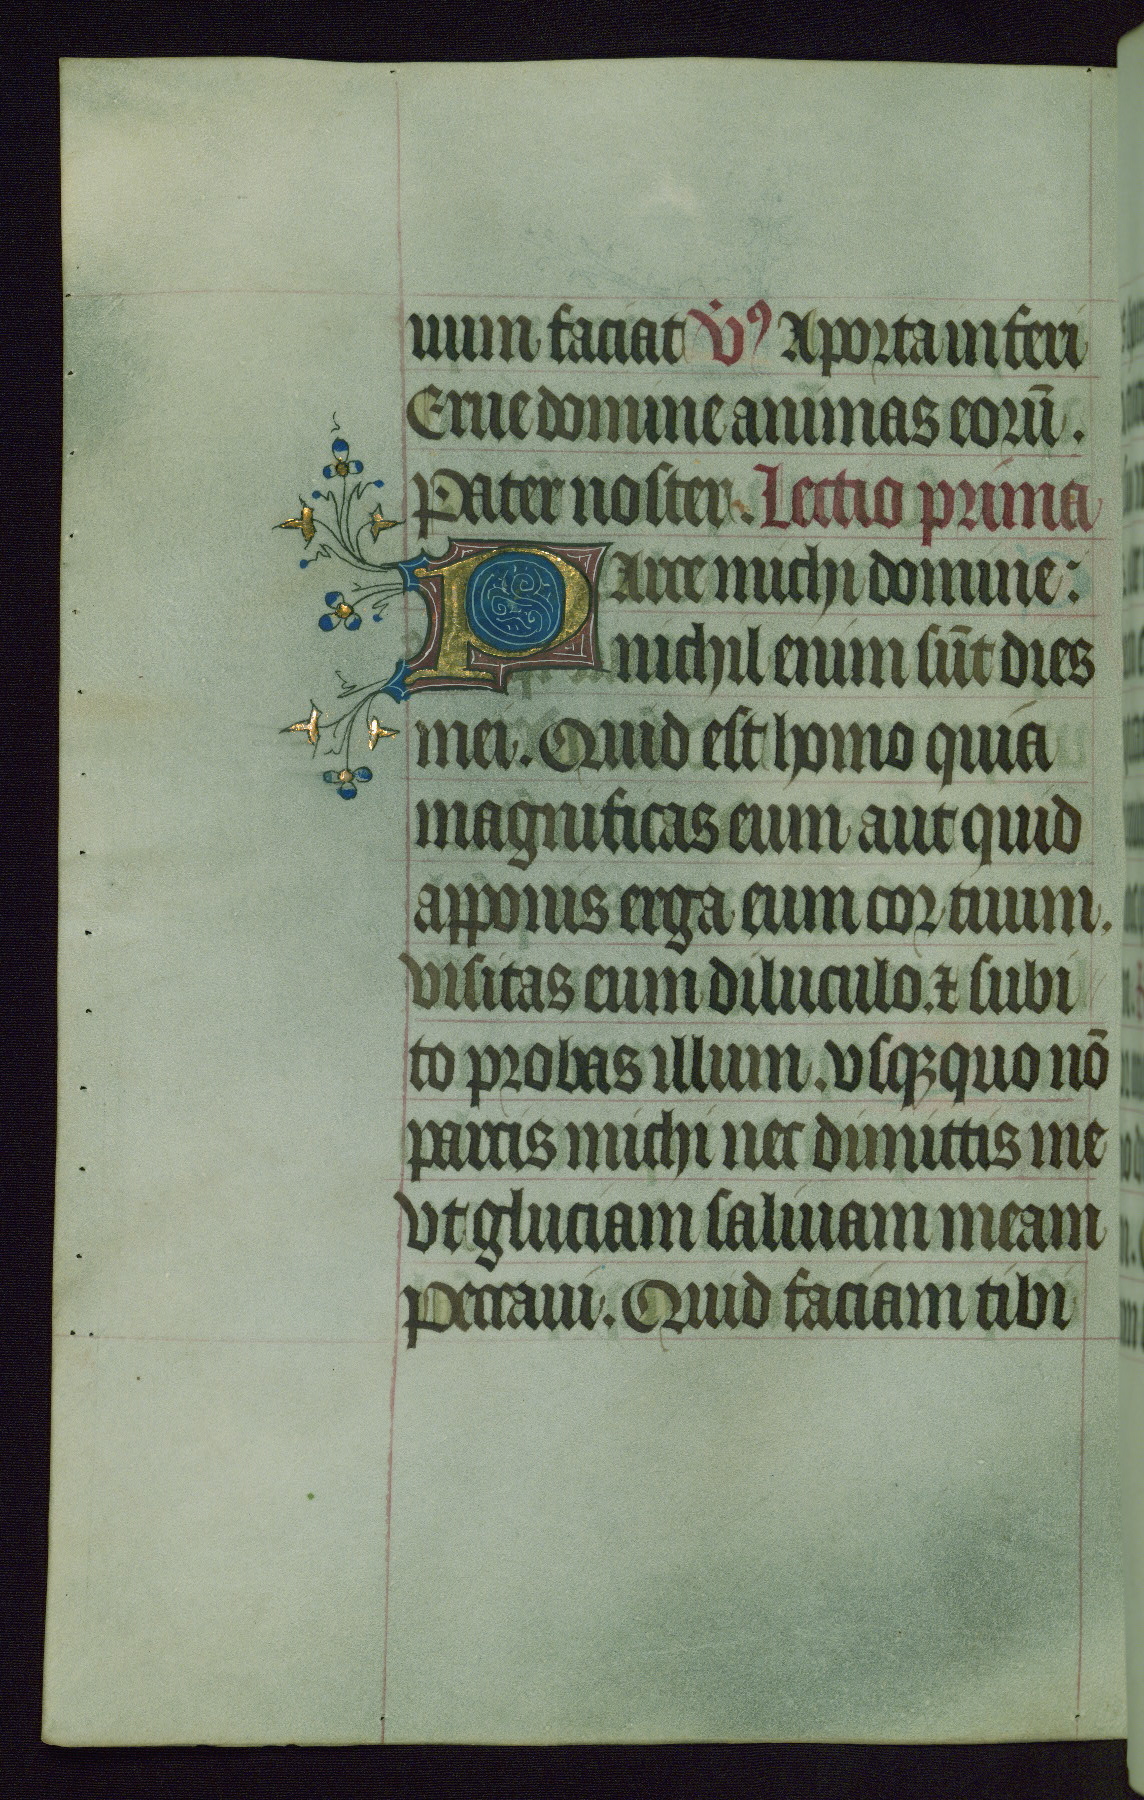 uum faciat V̇ꝰ A porta inferi
Erue domine animas eorū.
Pater noster. Lectio prima
Parce michi domine:
nichil enim sūt dies
mei. Quid est homo quia
magnificas eum aut quid
apponis erga eum cor tuum.
visitas eum diluculo. ⁊ subi
to probas illum. vsqꝫquo nō
parcis michi nec dimittis me
vt gluciam saliuam meam
peccaui. Quid faciam tibi